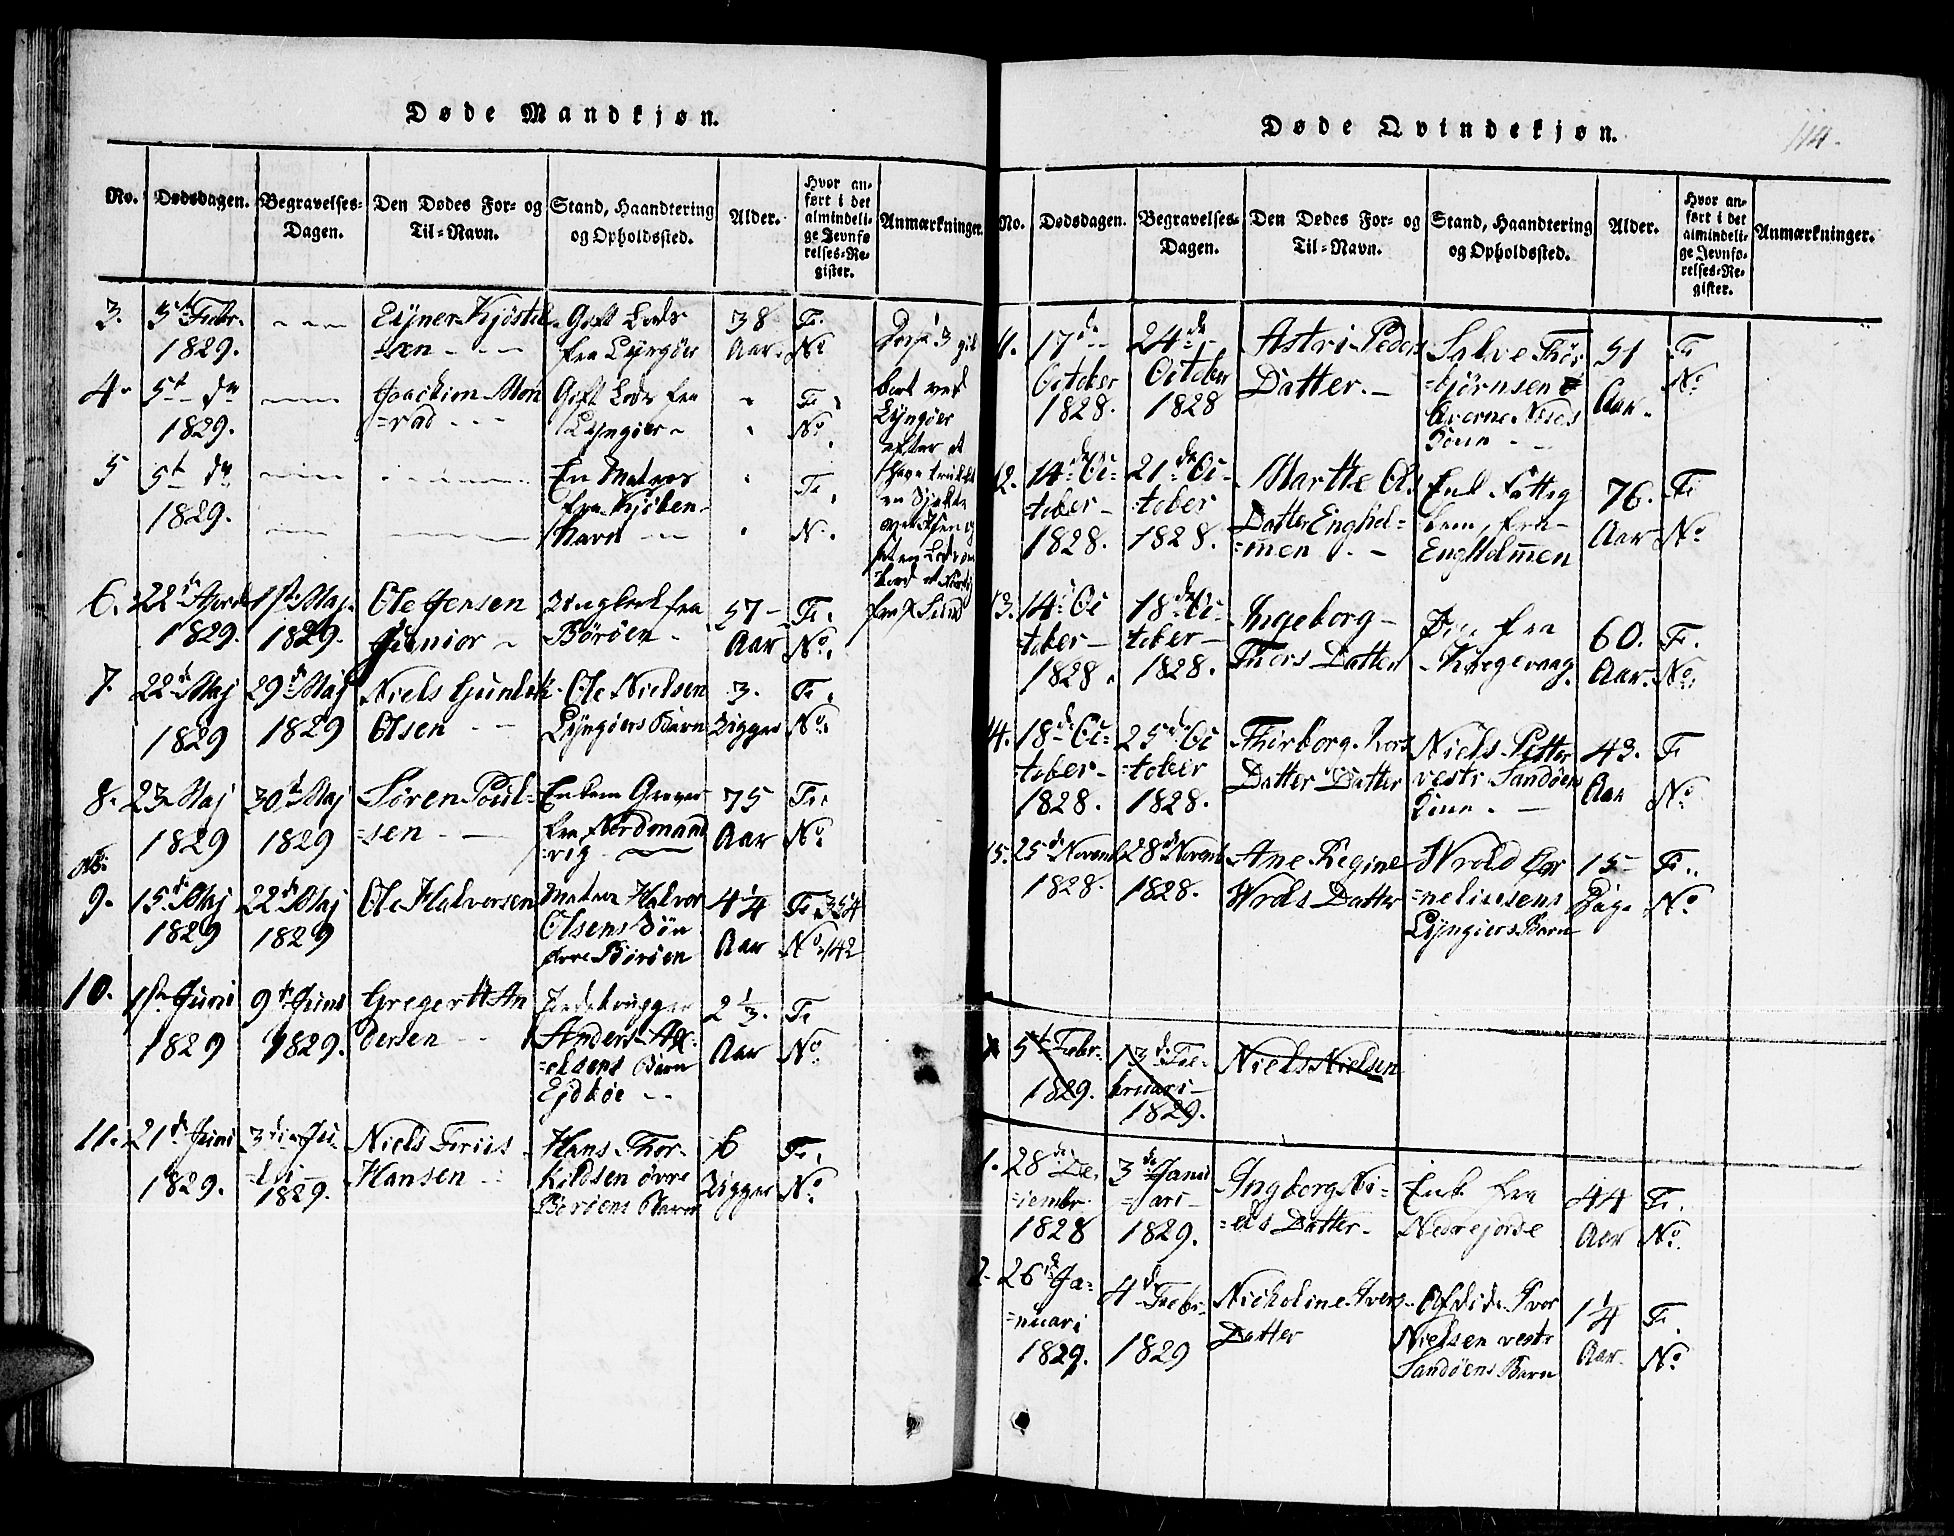 Døde Mandkjøn.
No.
Dødsdagen.
Begravelses-
Dagen.
Den Dødes For- og
Til-Navn.
Stand, Haandtering
og Opholdssted.
Alder.
Hvor an-
ført i det
almindeli-
ge Jevnfø
relses-Re-
gister.
Anmærkninger.
3.
5t Febr.
1829.
Ejner Kjøstel
=sen
Gift Lods
fra Lyngöer
38
Aar.
Fr.
No
4.
5t
1829.
Joachim
=rad
Gift Lods fra
Lyngöer
Fr.
No.
5
5t
1829.
En Matros
fra Kjöben-
havn
Fr.
No.
3 gik
bort ved
Lyngöer
efter at
have
en
og
en Lods om
bord
fra
6.
22d
1829.
1ste Maj
1829.
Ole Jensen
Junior
fra
Böröen
57
Aar
Fr.
No.
7.
22d Maj
1829
29d Maj
1829
Niels Gunlek
Olsen
Ole Nielsen
Lyngöers Barn
3.
Fr.
No.
8.
23 Maj
1829
30d Maj
1829
Søren Poul=
=sen
Enkem
fra Nordmand
=vig
75
Aar
Fr.
No
NB:
9.
15d Maj
1829
22d Maj
1829
Ole Halvorsen
Matros Halvor
Olsens Sön
övre Böröen
4 1/4
Aar
Fr. 354
No. 142
10.
1ste Juni
1829
9d Juni
1829.
Greger An
dersen
Anders Ax=
=elsens Barn
Ejdköe
2 1/3.
Aar
Fr
No
11.
21d Juni
1829.
3die Ju-
=li
1829.
Niels Friis
Hansen
Hans Thor-
kildsen övre
Böröens Barn
6
Fr.
No
Døde Qvindekjøn.
114.
No.
Dødsdagen.
Begravelses-
Dagen.
Den Dødes For- og
Til-Navn.
Stand, Haandtering
og Opholdssted.
Alder.
Hvor an-
ført i det
almindeli-
ge Jevnfø-
relses-Re-
gister.
Anmærkninger.
11.
17de
October
1828.
24de
October
1828
Astri Peders
Datter.
Salve Thor
=björnsen
Kone
51
Aar.
Fr
No
12.
14de Oc=
tober
1828.
21de Oc-
tober
1828.
Marthe Ols
Datter Enghol=
=men
Enke Fattig
lem, fra
Engholmen
76.
Aar
Fr
No
13.
14 Oc
tober
1828.
18de Oc
tober
1828.
Ingeborg
Thors Datter
fra
Krogevaag.
60.
Aar
Fr.
No.
14.
18de Oc=
=tober
1828.
25de Oc
=tober
1828.
Thorborg Lars
Datter Datter
Niels Petter
vestr Sandöens
Kone
43.
Aar
Fr
No.
15.
25d Novemb
1828.
28d Novemb
1828.
Ane Regine
Wrols Datter
Wrold Cor
=neliusens
Lyngöers Barn
15
Fr.
No
5t Febr.
1829.
13de Fe-
bruari
1829.
Niels Nielsen
1.
28de De-
=cembr
1828
3de Janu
=ari
1829.
Ingborg Ni=
=els Datter
Enke fra
Nedrejorde
44
Aar
Fr.
No.
2.
26d Ja=
=nuari
1829.
4d Febr.
1829
Nicholine Ivers
Datter
Afdöde Iver
Nielsen vestr
Sandöens Barn
1 1/4
Aar
Fr.
No